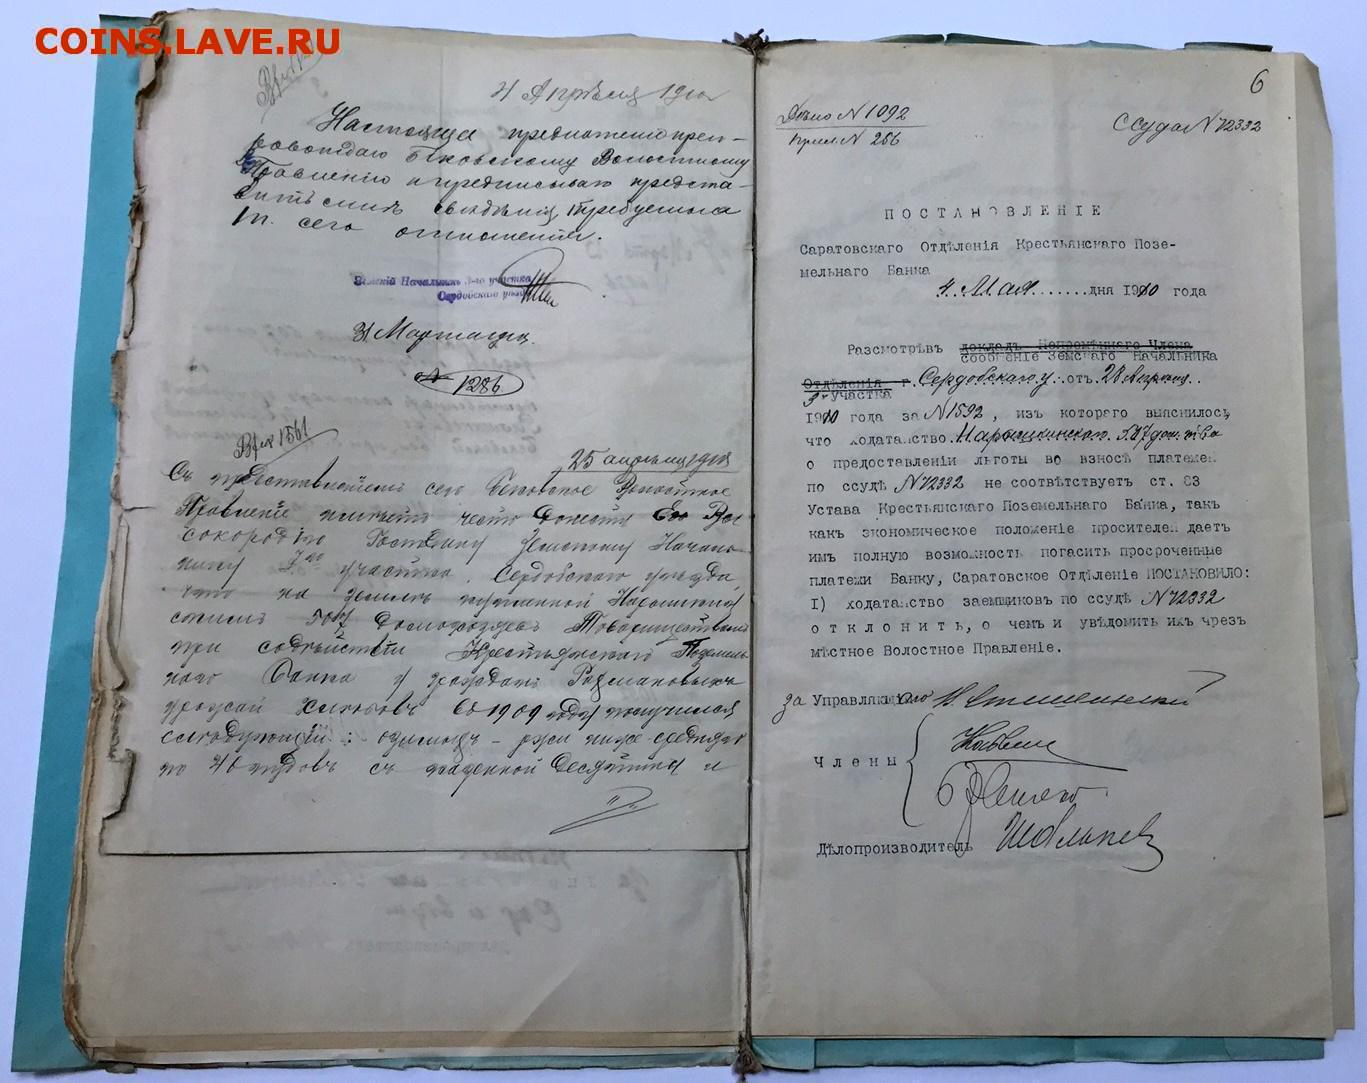 COINS.LAVE.RU
4 Апрѣля 1910
Настоящее предложеніе преп-
ровождаю Бековскому Волостному
Правленію и предписываю предста-
вить мнѣ свѣдѣнія, требуемыя
1 п. сего отношенія.
Земскій Начальникъ 3-го участка
Сердобскаго уѣзда
31 Марта
№ 1286
Вход 1561
25 апрѣля 1910
Съ представленіемъ сего Бековское Волостное
Правленіе имѣетъ честь донести Его Выс
сокородію Господину Земскому Началь
нику 3го участка, Сердобскаго уѣзда,
что на землѣ купленной Нарышкин
скимъ 507 домохозяевъ Товариществомъ
при содѣйствіи Крестьянскаго Поземель
наго Банка у гражданъ
урожай хлѣбовъ въ 1909 году получился
слѣдующій: озимыхъ - ржи ниже средняго
по 40 пудовъ съ казенной десятины и
6
Дѣло N 1092
N 266
Ссуда N 72332
ПОСТАНОВЛЕНІЕ
Саратовскаго Отдѣленія Крестьянскаго Позе-
мельнаго Банка
4. Мая......дня 1910 года
Разсмотрѣвъ докладъ Непремѣннаго Члена
сообщеніе Земскаго Начальника
Отдѣленія г. Сердобскаго у. отъ 28 Апрѣля..
3 участка
1910 года за N 1592, изъ котораго выяснилось,
что ходатайство Нарышкинскаго 507 дом. т-ва
о предоставленіи льготы во взносѣ платежей
по ссудѣ N 72332 не соотвѣтствуетъ ст. 83
Устава Крестьянскаго Поземельнаго Банка, такъ
какъ экономическое положеніе просителей даетъ
имъ полную возможность погасить просроченные
платежи Банку, Саратовское Отдѣленіе ПОСТАНОВИЛО:
I) ходатайство заемщиковъ по ссудѣ N 72332
отклонить, о чемъ и увѣдомить ихъ чрезъ
мѣстное Волостное Правленіе.
За Управляющаго
Члены
Дѣлопроизводитель